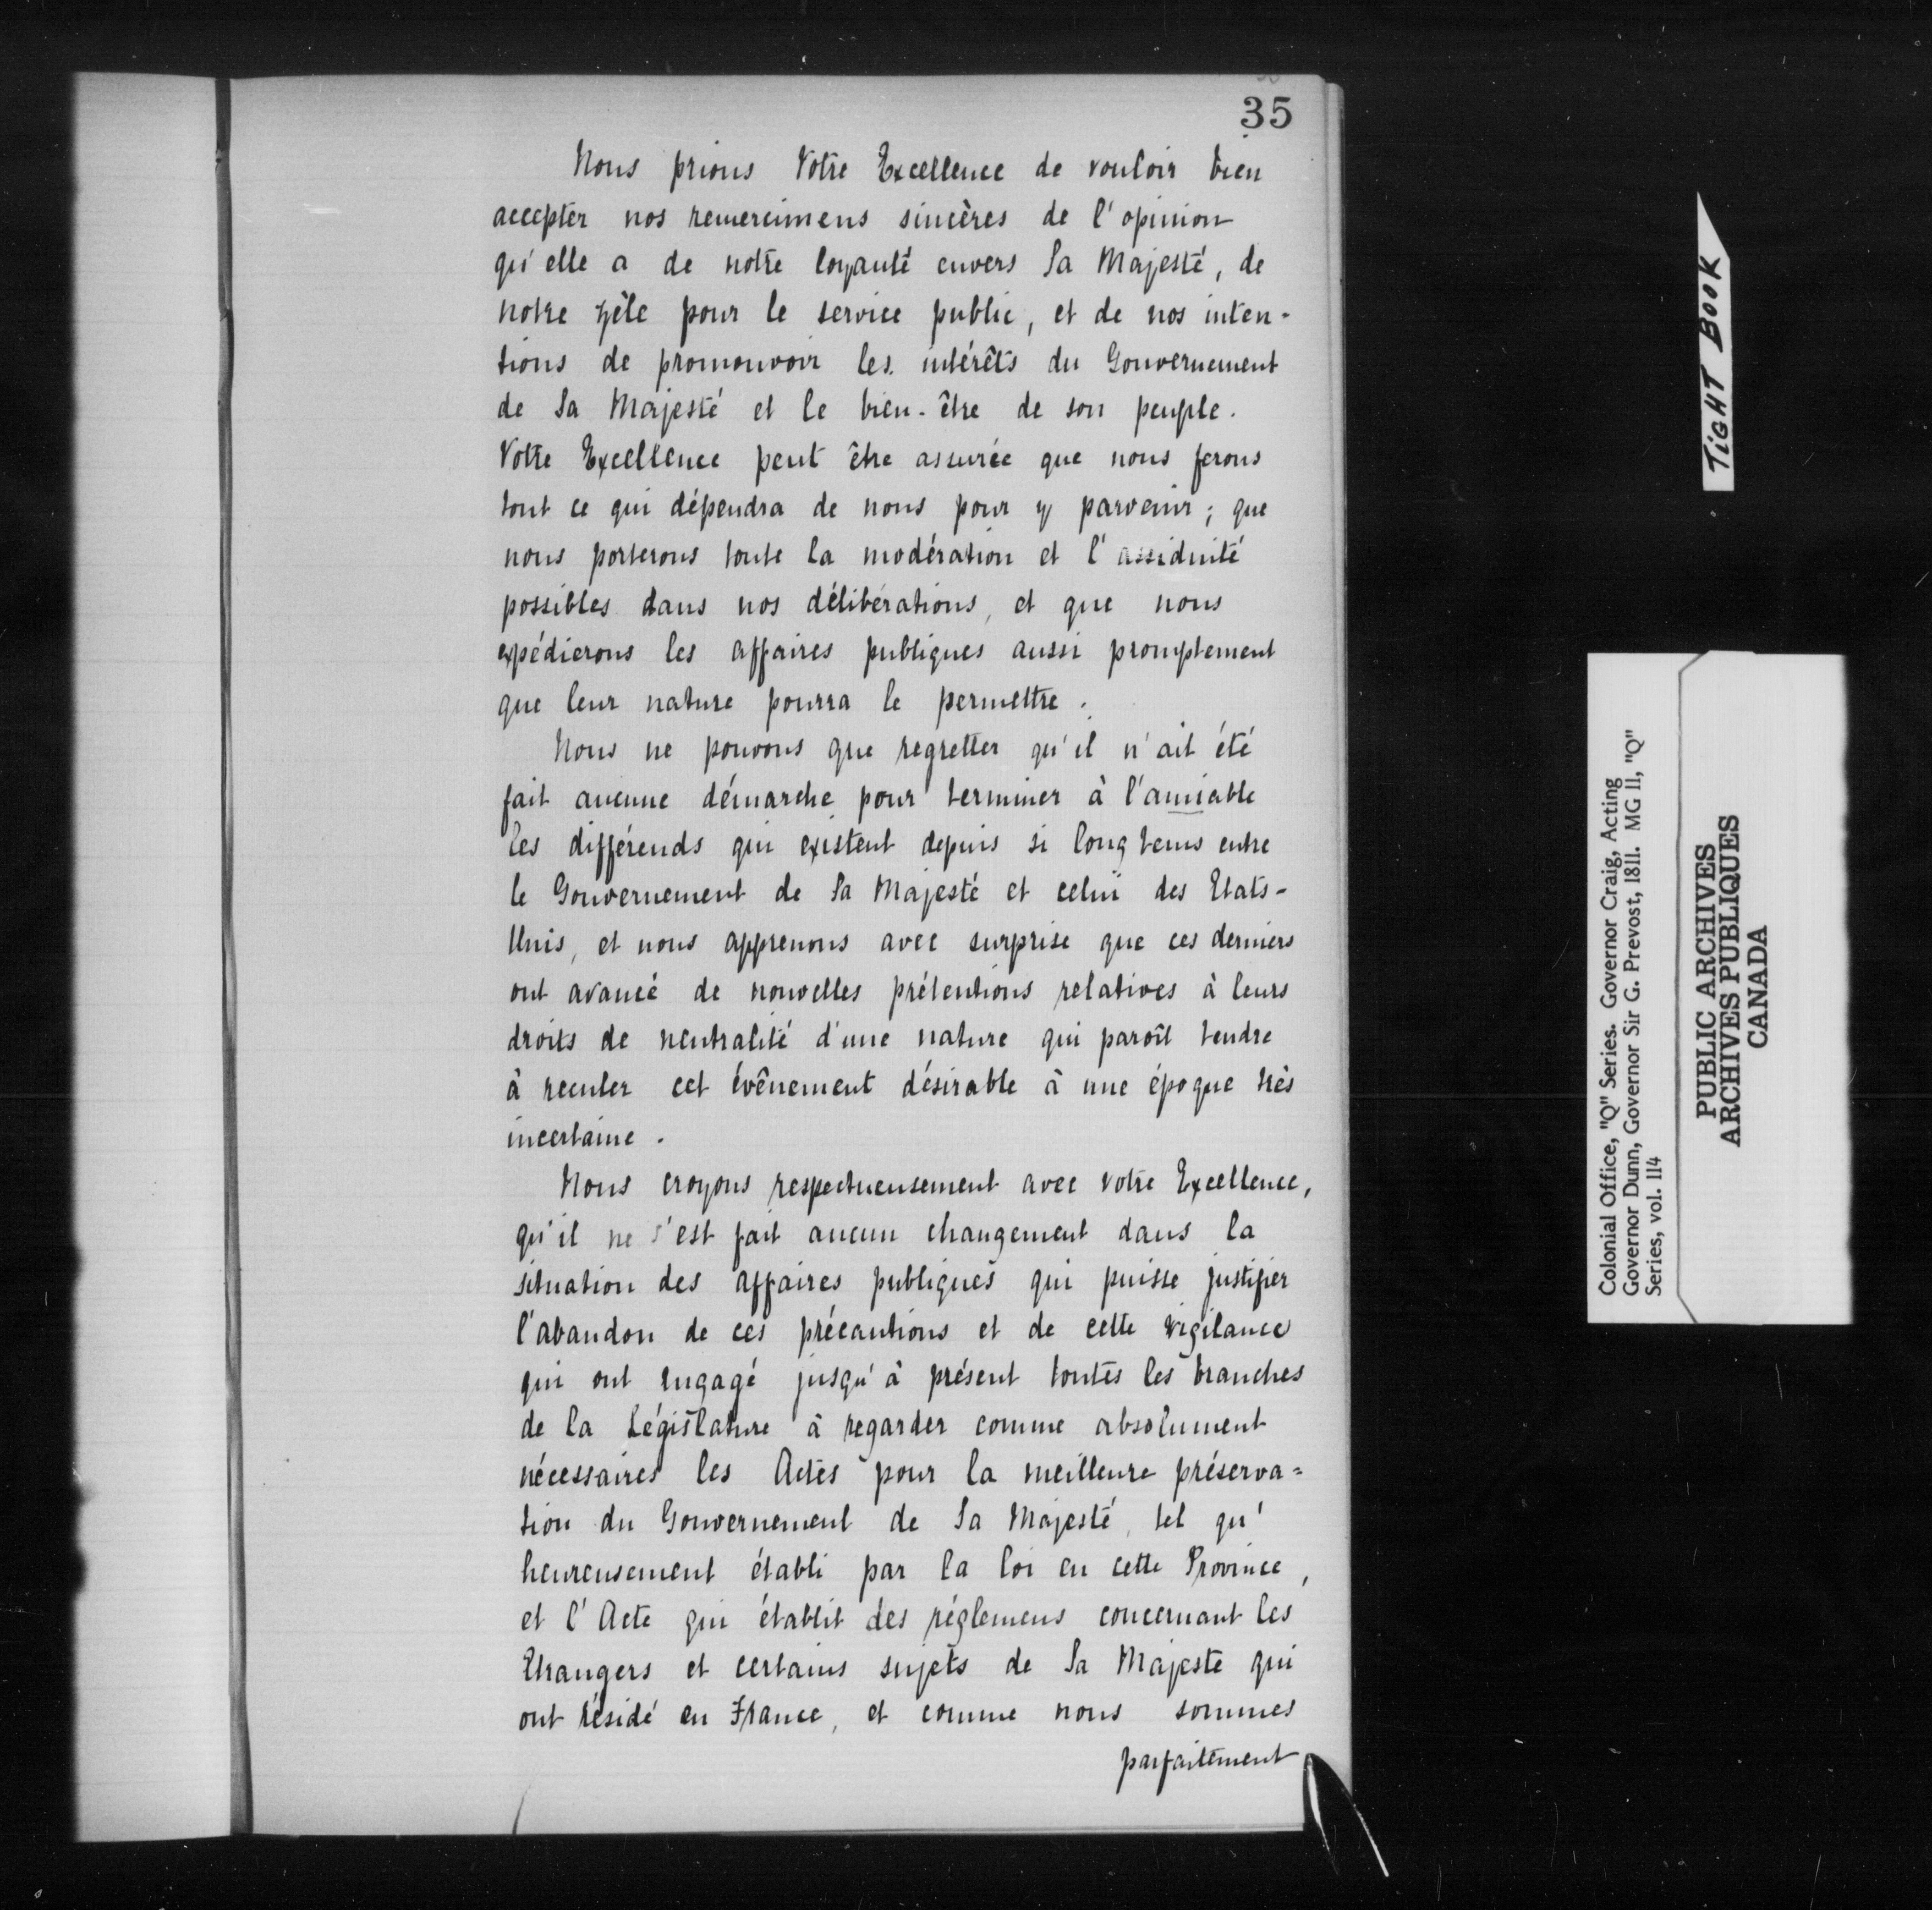 35
Nous prions Votre Excellence de vouloir bien
accepter nos remercimens sincères de l'opinion
qu'elle a de notre loyauté envers Sa Majesté, de
notre zèle pour le service public, et de nos inten-
tions de promouvoir les intérêts du Gouvernement
de Sa Majesté et le bien-être de son peuple.
Votre Excellence peut être assurée que nous ferons
tout ce qui dépendra de nous pour y parvenir; que
nous porterons toute la modération et l'assiduité
possibles dans nos délibérations, et que nous
expédierons les affaires publiques aussi promptement
que leur nature pourra le permettre.
Nous ne pouvons que regretter qu'il n'ait été
fait aucune démarche pour terminer à l'amiable
les différends qui existent depuis si long tems entre
le Gouvernement de Sa Majesté et celui des Etats-
Unis, et nous apprenons avec surprise que ces derniers
ont avancé de nouvelles prétentions relatives à leurs
droits de neutralité d'une nature qui paroît tendre
à reculer cet évênement désirable à une époque très
incertaine.
Nous croyons respectueusement avec votre Excellence,
qu'il ne s'est fait aucun changement dans la
situation des affaires publiques qui puisse justifier
l'abandon de ces précautions et de cette vigilance
qui ont engagé jusqu'à présent toutes les branches
de la Législature à regarder comme absolument
nécessaires les Actes pour la meilleure préserva=
tion du Gouvernement de Sa Majesté, tel qu'
heureusement établi par la loi en cette Province,
et l'Acte qui établit des réglemens concernant les
Etrangers et certains sujets de Sa Majesté qui
ont résidé en France, et comme nous sommes
parfaitement
TIGHT BOOK
Colonial Office, "Q" Series. Governor Craig, Acting
Governor Dunn, Governor Sir G. Prevost, 1811. MG 11, "Q"
Series, vol. 114
PUBLIC ARCHIVES
ARCHIVES PUBLIQUES
CANADA